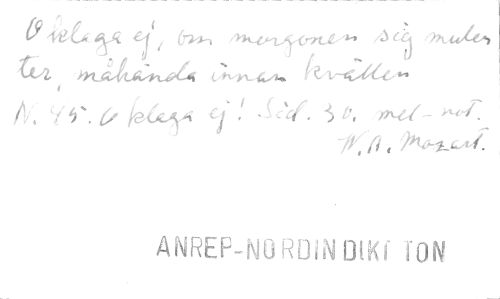 O klaga ej, om morgonen sig mulen
ter, måhända innan kvällen
N. 45. O klaga ej! Sid. 30. mel-not.
W.A. Mozart.
ANREP-NORDIN DIKT TON